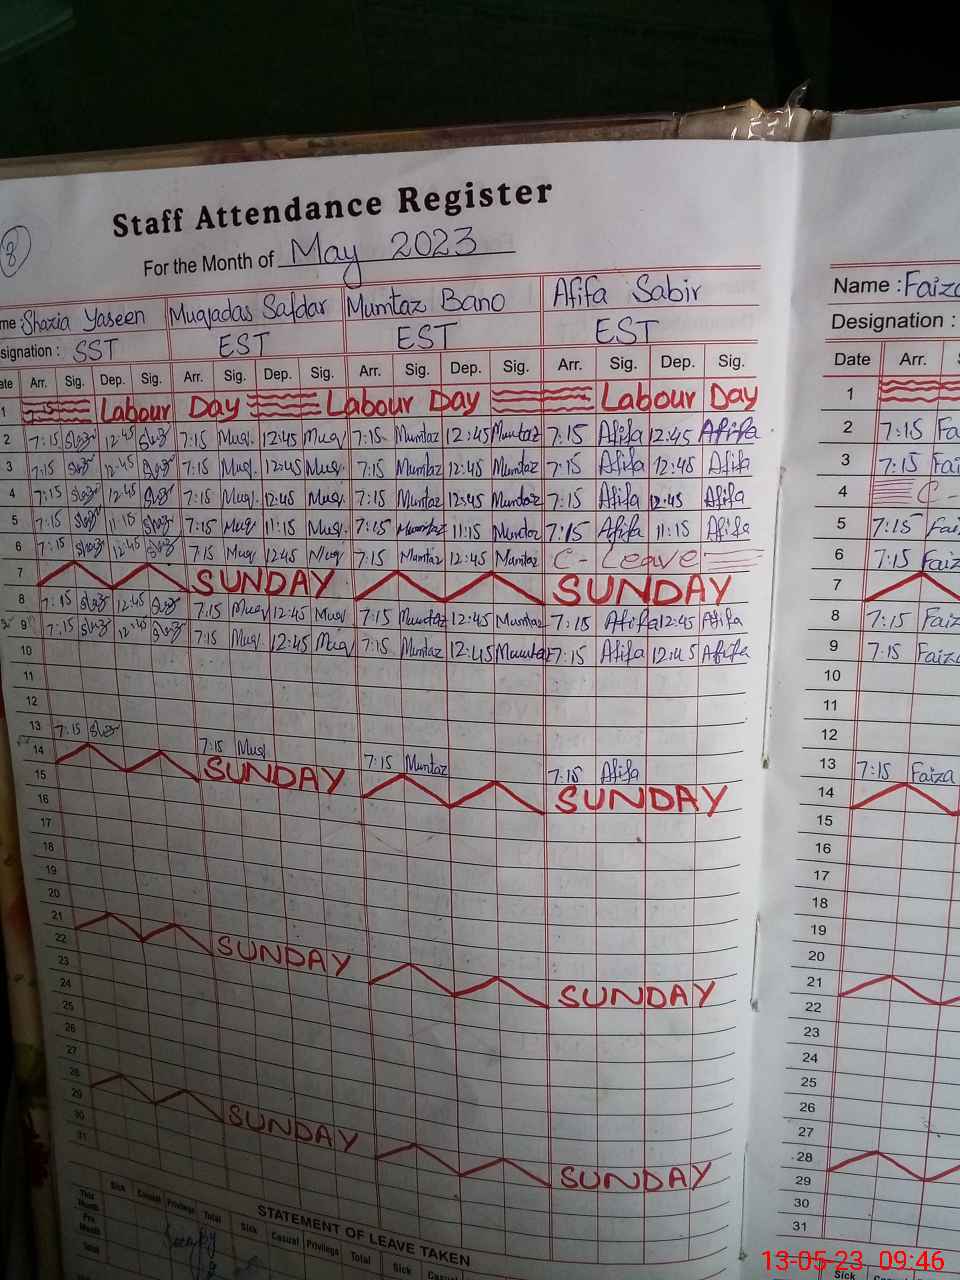 8
Staff Attendance Register
For the Month of May 2023
me : Shazia Yaseen Muqadas Safdar Mumtaz Bano Afifa Sabir
signation : SST EST EST EST
ate Arr. Sig. Dep. Sig. Arr. Sig. Dep. Sig. Arr. Sig. Dep. Sig. Arr. Sig. Dep. Sig.
1 Labour Day Labour Day Labour Day
2 7:15 12:45 7:15 Muq. 12:45 Muq 7:15 Mumtaz 12:45 Mumtaz 7:15 Afifa 12:45 Afifa
3 7:15 12:45 7:15 Muq. 12:45 Muq. 7:15 Mumtaz 12:45 Mumtaz 7:15 Afifa 12:45 Afifa
4 7:15 12:45 7:15 Muq. 12:45 Muq. 7:15 Mumtaz 12:45 Mumtaz 7:15 Afifa 12:45 Afifa
5 7:15 11:15 7:15 Muq 11:15 Muq. 7:15 Mumtaz 11:15 Mumtaz 7:15 Afifa 11:15 Afifa
6 7:15 12:45 7:15 Muq 12:45 Muq 7:15 Mumtaz 12:45 Mumtaz C- Leave
7 SUNDAY SUNDAY
8 7:15 12:45 7:15 Muq 12:45 Muq 7:15 Mumtaz 12:45 Mumtaz 7:15 Afifa 12:45 Afifa
9 7:15 12:45 7:15 Muq. 12:45 Muq 7:15 Mumtaz 12:45 Mumtaz 7:15 Afifa 12:45 Afifa
10
11
12
13 7:15 7:15 Muq 7:15 Mumtaz 7:15 Afifa
14 SUNDAY SUNDAY
15
16
17
18
19
20
21 SUNDAY SUNDAY
22
23
24
25
26
27
28 SUNDAY SUNDAY
29
30
31
STATEMENT OF LEAVE TAKEN
Sick Casual Privilege Total Sick Casual Privilege Total Sick Casual
This Month
Pre Month
Total
Name : Faiza
Designation :
Date Arr.
1
2 7:15 Fa
3 7:15 Fai
4 C-
5 7:15 Fai
6 7:15 Faiz
7
8 7:15 Faiz
9 7:15 Faiza
10
11
12
13 7:15 Faiza
14
15
16
17
18
19
20
21
22
23
24
25
26
27
28
29
30
31
Sick Cas
13-05-23 09:46